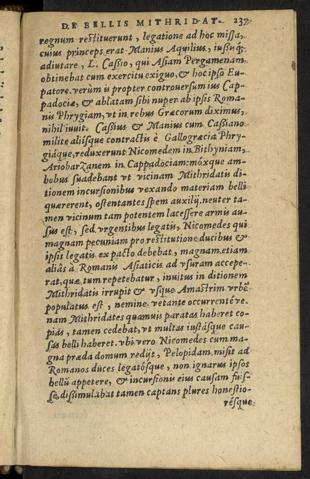 DE BELLIS MITHRIDAT. 237
regnum restituerunt, legatione ad hoc missa,
cuius princeps erat Manius Aquilius, iussiq́;
adiutare, L. Cassio, qui Asiam Pergamenam
obtinebat cum exercitu exiguo, & hoc ipso Eu-
patore. verùm is propter controuersum ius Cap-
padociæ, & ablatam sibi nuper ab ipsis Roma-
nis Phrygiam, vt in rebus Græcorum diximus,
nihil iuuit. Cassius & Manius cum Cassiano
milite aliisque contractis è Gallogræcia Phry-
giáque, reduxerunt Nicomedem in Bithyniam,
Ariobarzanem in Cappadociam: móxque am-
bobus suadebant vt vicinam Mithridatis di-
tionem incursionibus vexando materiam belli
quærerent, ostentantes spem auxilij. neuter ta-
men vicinum tam potentem lacessere armis au-
sus est, sed vrgentibus legatis, Nicomedes qui
magnam pecuniam pro restitutione ducibus &
ipsis legatis ex pacto debebat, magnam etiam
aliâs à Romanis Asiaticis ad vsuram accepe-
rat, quæ tum repetebatur, inuitus in ditionem
Mithridatis irrupit & vsque Amastrim vrbē
populatus est, nemine vetante occurrentéve.
nam Mithridates quamuis paratas haberet co-
pias, tamen cedebat, vt multas iustásque cau-
sas belli haberet. vbi vero Nicomedes cum ma-
gna præda domum redijt, Pelopidam misit ad
Romanos duces legatósque, non ignarus ipsos
bellū appetere, & incursionis eius causam fuis-
se, dissimulabat tamen captans plures honestio-
résque